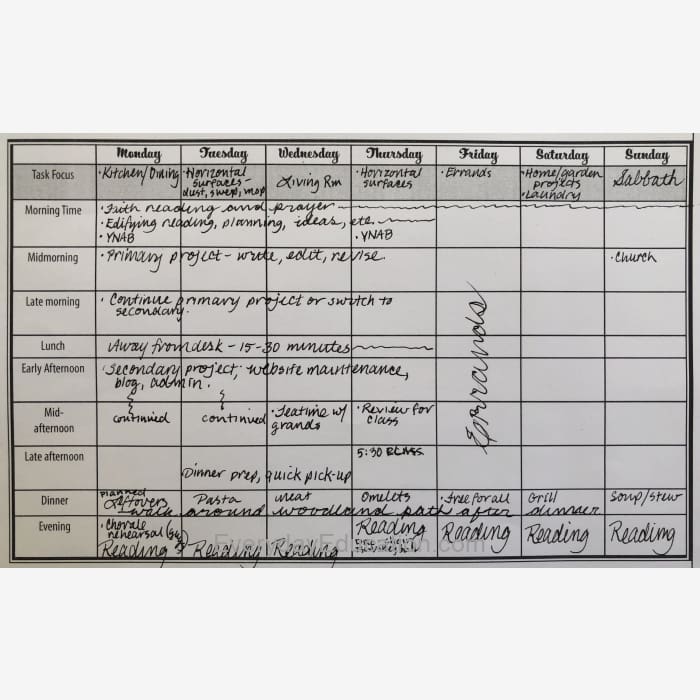 Monday Tuesday Wednesday Thursday Friday Saturday Sunday
Task Focus
• Kitchen/Dining
• Horizontal
surfaces-
dust, swep, mop
Living Rm
• Horizontal
surfaces
• Errands
• Home/garden
projects
• Laundry
Sabbath
Morning Time
• Faith reading and prayer
• Edifying reading, planning, ideas, etc.
• YNAB
• YNAB
Midmorning
• Primary project - write, edit, revise.
• Church
Late morning
• Continue primary project or switch to
secondary.
Errands
Lunch
Away from desk - 15-30 minutes
Early Afternoon
Secondary project, website maintenance,
blog, admin.
Mid-
afternoon
continued
continued
• Teatime w/
grands
• Review for
class
Late afternoon
Dinner prep, quick pick-up
5:30 CLASS
Dinner
planned
Leftovers
Pasta
meat
Omelets
• Free for all
Grill
Soup/stew
walk around woodland path after dinner
Evening
• Chorale
rehearsal
Reading
Reading
Reading
Reading
Reading
Reading
Reading
EverydayEducation.com